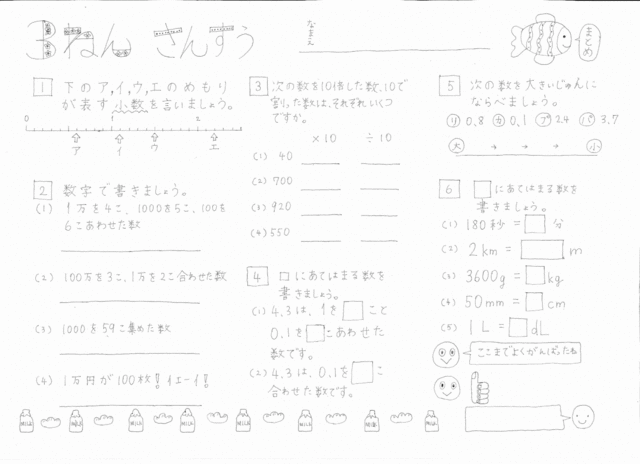 3ねん さんすう
なまえ
まとめ
1 下のア,イ,ウ,エのめもり
が表す小数を言いましょう。
0 1 2
ア イ ウ エ
2 数字で書きましょう。
(1) 1万を4こ、1000を5こ、100を
6こあわせた数
(2) 100万を3こ、1万を2こ合わせた数
(3) 1000を59こ集めた数
(4) 1万円が100枚!イエーイ!
3 次の数を10倍した数、10で
割った数は、それぞれいくつ
ですか。
×10 ÷10
(1) 40
(2) 700
(3) 920
(4) 550
4 □にあてはまる数を
書きましょう。
(1) 4.3は、1を□こと
0.1を□こあわせた
数です。
(2) 4.3は、0.1を□こ
合わせた数です。
5 次の数を大きいじゅんに
ならべましょう。
リ 0.8 カ 0.1 プ 2.4 パ 3.7
大 → → → 小
6 □にあてはまる数を
書きましょう。
(1) 180秒 = □ 分
(2) 2km = □ m
(3) 3600g = □ kg
(4) 50mm = □ cm
(5) 1L = □ dL
ここまでよくがんばったね
MILK MILK MILK MILK MILK MILK MILK MILK